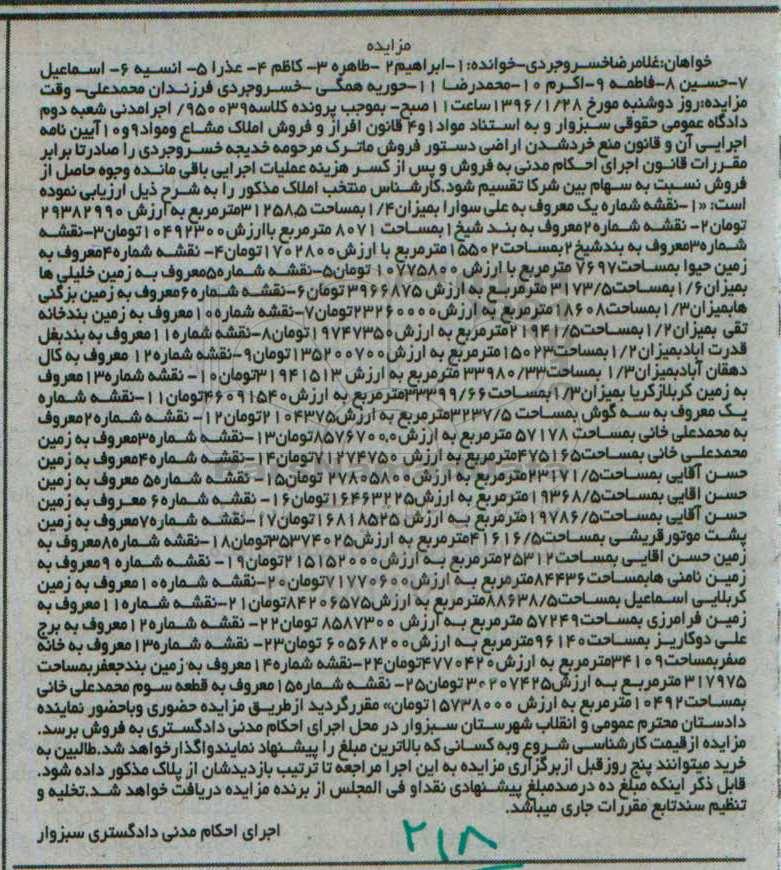 مزایده
خواهان:غلامرضاخسروجردی-خوانده:۱-ابراهیم۲ -طاهره ۳- کاظم ۴- عذرا ۵- انسیه ۶- اسماعیل
۷-حسین ۸-فاطمه ۹-اکرم ۱۰-محمدرضا ۱۱-حوریه همگی -خسروجردی فرزندان محمدعلی- وقت
مزایده:روز دوشنبه مورخ ۱۳۹۶/۱/۲۸ساعت۱۱صبح- بموجب پرونده کلاسه۹۵۰۰۳۹/ اجرامدنی شعبه دوم
دادگاه عمومی حقوقی سبزوار و به استناد مواد۱و۴ قانون افراز و فروش املاک مشاع ومواد۹و۱۰آیین نامه
اجرایی آن و قانون منع خردشدن اراضی دستور فروش ماترک مرحومه خدیجه خسروجردی را صادرتا برابر
مقررات قانون اجرای احکام مدنی به فروش و پس از کسر هزینه عملیات اجرایی باقی مانده وجوه حاصل از
فروش نسبت به سهام بین شرکا تقسیم شود.کارشناس منتخب املاک مذکور را به شرح ذیل ارزیابی نموده
است: «۱-نقشه شماره یک معروف به علی سوارا بمیزان۱/۴بمساحت ۳۱۲۵۸.۵مترمربع به ارزش ۲۹۳۸۲۹۹۰
تومان۲- نقشه شماره۲معروف به بند شیخ۱بمساحت ۸۰۷۱ مترمربع باارزش۱۰۴۹۲۳۰۰تومان۳-نقشه
شماره۳معروف به بندشیخ۲بمساحت۱۵۵۰۲مترمربع با ارزش۱۷۰۲۸۰۰تومان۴- نقشه شماره۴معروف به
زمین حیوا بمساحت۷۶۹۷ مترمربع با ارزش ۱۰۷۷۵۸۰۰ تومان۵-نقشه شماره۵معروف به زمین خلیلی ها
بمیزان۱/۶بمساحت ۳۱۷۳/۵ مترمربع به ارزش ۳۹۶۶۸۷۵ تومان۶-نقشه شماره۶معروف به زمین بزگنی
هابمیزان۱/۳بمساحت۱۸۶۰۸مترمربع به ارزش۲۳۲۶۰۰۰۰تومان۷-نقشه شماره۱۰معروف به زمین بندخانه
تقی بمیزان۱/۲بمساحت۲۱۹۴۱/۵مترمربع به ارزش۱۹۷۴۷۳۵۰تومان۸-نقشه شماره۱۱معروف به بندبغل
قدرت ابادبمیزان۱/۲بمساحت۱۵۰۲۳مترمربع به ارزش۱۳۵۲۰۰۷۰۰تومان۹-نقشه شماره۱۲ معروف به کال
دهقان آبادبمیزان۱/۳ بمساحت ۳۳۹۸۰/۳۳ مترمربع به ارزش ۳۱۹۴۱۵۱۳تومان۱۰- نقشه شماره۱۳معروف
به زمین کربلازکریا بمیزان۱/۳بمساحت۳۳۳۹۹/۶۶مترمربع به ارزش۴۶۰۹۱۵۴۰تومان۱۱-نقشه شماره
یک معروف به سه گوش بمساحت ۳۲۳۷/۵مترمربع به ارزش۲۱۰۴۳۷۵تومان۱۲-نقشه شماره۲معروف
به محمدعلی خانی بمساحت ۵۷۱۷۸ مترمربع به ارزش۸۵۷۶۷۰۰۰تومان۱۳-نقشه شماره۳معروف به زمین
محمدعلی خانی بمساحت۴۷۵۱۶۵مترمربع به ارزش ۷۱۲۷۴۷۵۰ تومان۱۴-نقشه شماره۴معروف به زمین
حسن آقایی بمساحت۲۳۱۷۱/۵مترمربع به ارزش ۲۷۸۰۵۸۰۰ تومان۱۵- نقشه شماره۵ معروف به زمین
حسن اقایی بمساحت۱۹۳۶۸/۵مترمربع به ارزش۱۶۴۶۳۲۲۵تومان۱۶- نقشه شماره۶ معروف به زمین
حسن آقایی بمساحت۱۹۷۸۶/۵مترمربع به ارزش ۱۶۸۱۸۵۲۵ تومان۱۷-نقشه شماره۷معروف به زمین
پشت موتورقریشی بمساحت۴۱۶۱۶/۵مترمربع به ارزش۳۵۳۷۴۰۲۵تومان۱۸-نقشه شماره۸معروف به
زمین حسن اقایی بمساحت۲۵۳۱۲مترمربع به ارزش۲۱۵۱۵۲۰۰۰تومان۱۹- نقشه شماره ۹معروف به
زمین نامنی هابمساحت۸۴۴۳۶مترمربع به ارزش۷۱۷۷۰۶۰۰تومان۲۰-نقشه شماره۱۰معروف به زمین
کربلایی اسماعیل بمساحت۸۸۶۳۸/۵مترمربع به ارزش۸۴۲۰۶۵۷۵تومان۲۱-نقشه شماره۱۱معروف به
زمین فرامرزی بمساحت۵۷۲۴۹ مترمربع به ارزش ۸۵۸۷۳۰۰ تومان۲۲- نقشه شماره۱۲معروف به برج
علی دوکاریز بمساحت۹۶۱۴۰مترمربع به ارزش۶۰۵۶۸۲۰۰ تومان۲۳- نقشه شماره۱۳معروف به خانه
صفربمساحت۳۴۱۰۹مترمربع به ارزش۴۷۷۰۴۲۰تومان۲۴-نقشه شماره۱۴معروف به زمین بندجعفربمساحت
۳۱۷۹۷۵ مترمربع به ارزش۳۰۲۰۷۴۲۵تومان۲۵- نقشه شماره۱۵معروف به قطعه سوم محمدعلی خانی
بمساحت۱۰۴۹۲مترمربع به ارزش ۱۵۷۳۸۰۰۰تومان» مقررگردید ازطریق مزایده حضوری وباحضور نماینده
دادستان محترم عمومی و انقلاب شهرستان سبزوار در محل اجرای احکام مدنی دادگستری به فروش برسد.
مزایده ازقیمت کارشناسی شروع وبه کسانی که بالاترین مبلغ را پیشنهاد نمایندواگذارخواهد شد.طالبین به
خرید میتوانند پنج روزقبل ازبرگزاری مزایده به این اجرا مراجعه تا ترتیب بازدیدشان از پلاک مذکور داده شود.
قابل ذکر اینکه مبلغ ده درصدمبلغ پیشنهادی نقداو فی المجلس از برنده مزایده دریافت خواهد شد.تخلیه و
تنظیم سندتابع مقررات جاری میباشد.
اجرای احکام مدنی دادگستری سبزوار
۲۱۸